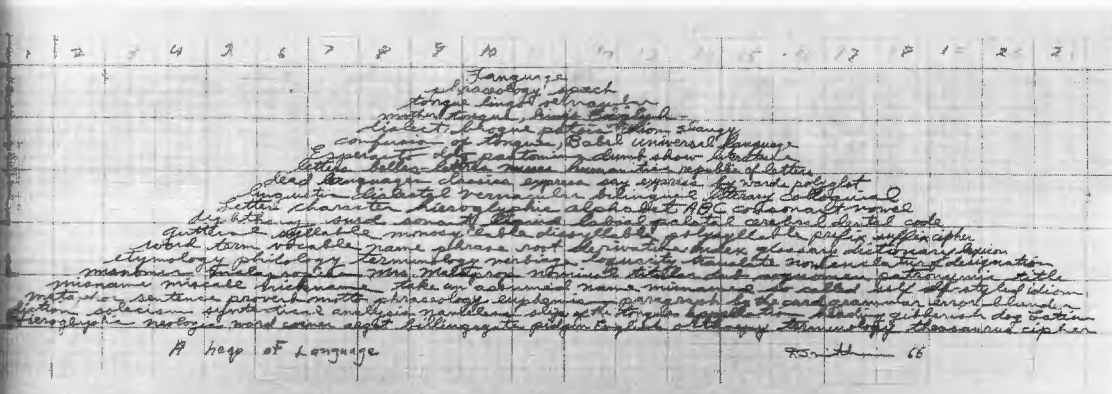 1 2 3 4 5 6 7 8 9 10 17
Language
phraseology speech
tongue lingo vernacular
mother tongue, king's English
dialect brogue patois idiom slang
confusion of tongues, Babel universal language
Esperanto pantomime dumb show literature
letters belles-lettres muses humanities republic of letters
dead languages classics express say express by words polyglot
linguistics dialectal vernacular bilingual literary colloquial
letters character hieroglyphic alphabet ABC consonant vowel
diphthong surd sonant liquid labial palatal cerebral dental code
guttural syllable monosyllable dissyllable polysyllable prefix suffix cipher
word term vocable name phrase root derivative index glossary dictionary lexicon
etymology philology terminology verbiage loquacity translate nomenclature designation
misnomer malapropism Mrs. Malaprop nominal titular patronymic title
misname miscall nickname take an assumed name misnamed so called self styled idiom
metaphor sentence proverb motto phraseology euphemism paragraph grammar error blunder
diction solecism syntactical analysis slip of the tongue heading gibberish dog Latin
hieroglyphic neologist word coiner argot billingsgate pidgin English terminology thesaurus cipher
A heap of Language
RSmithson 66